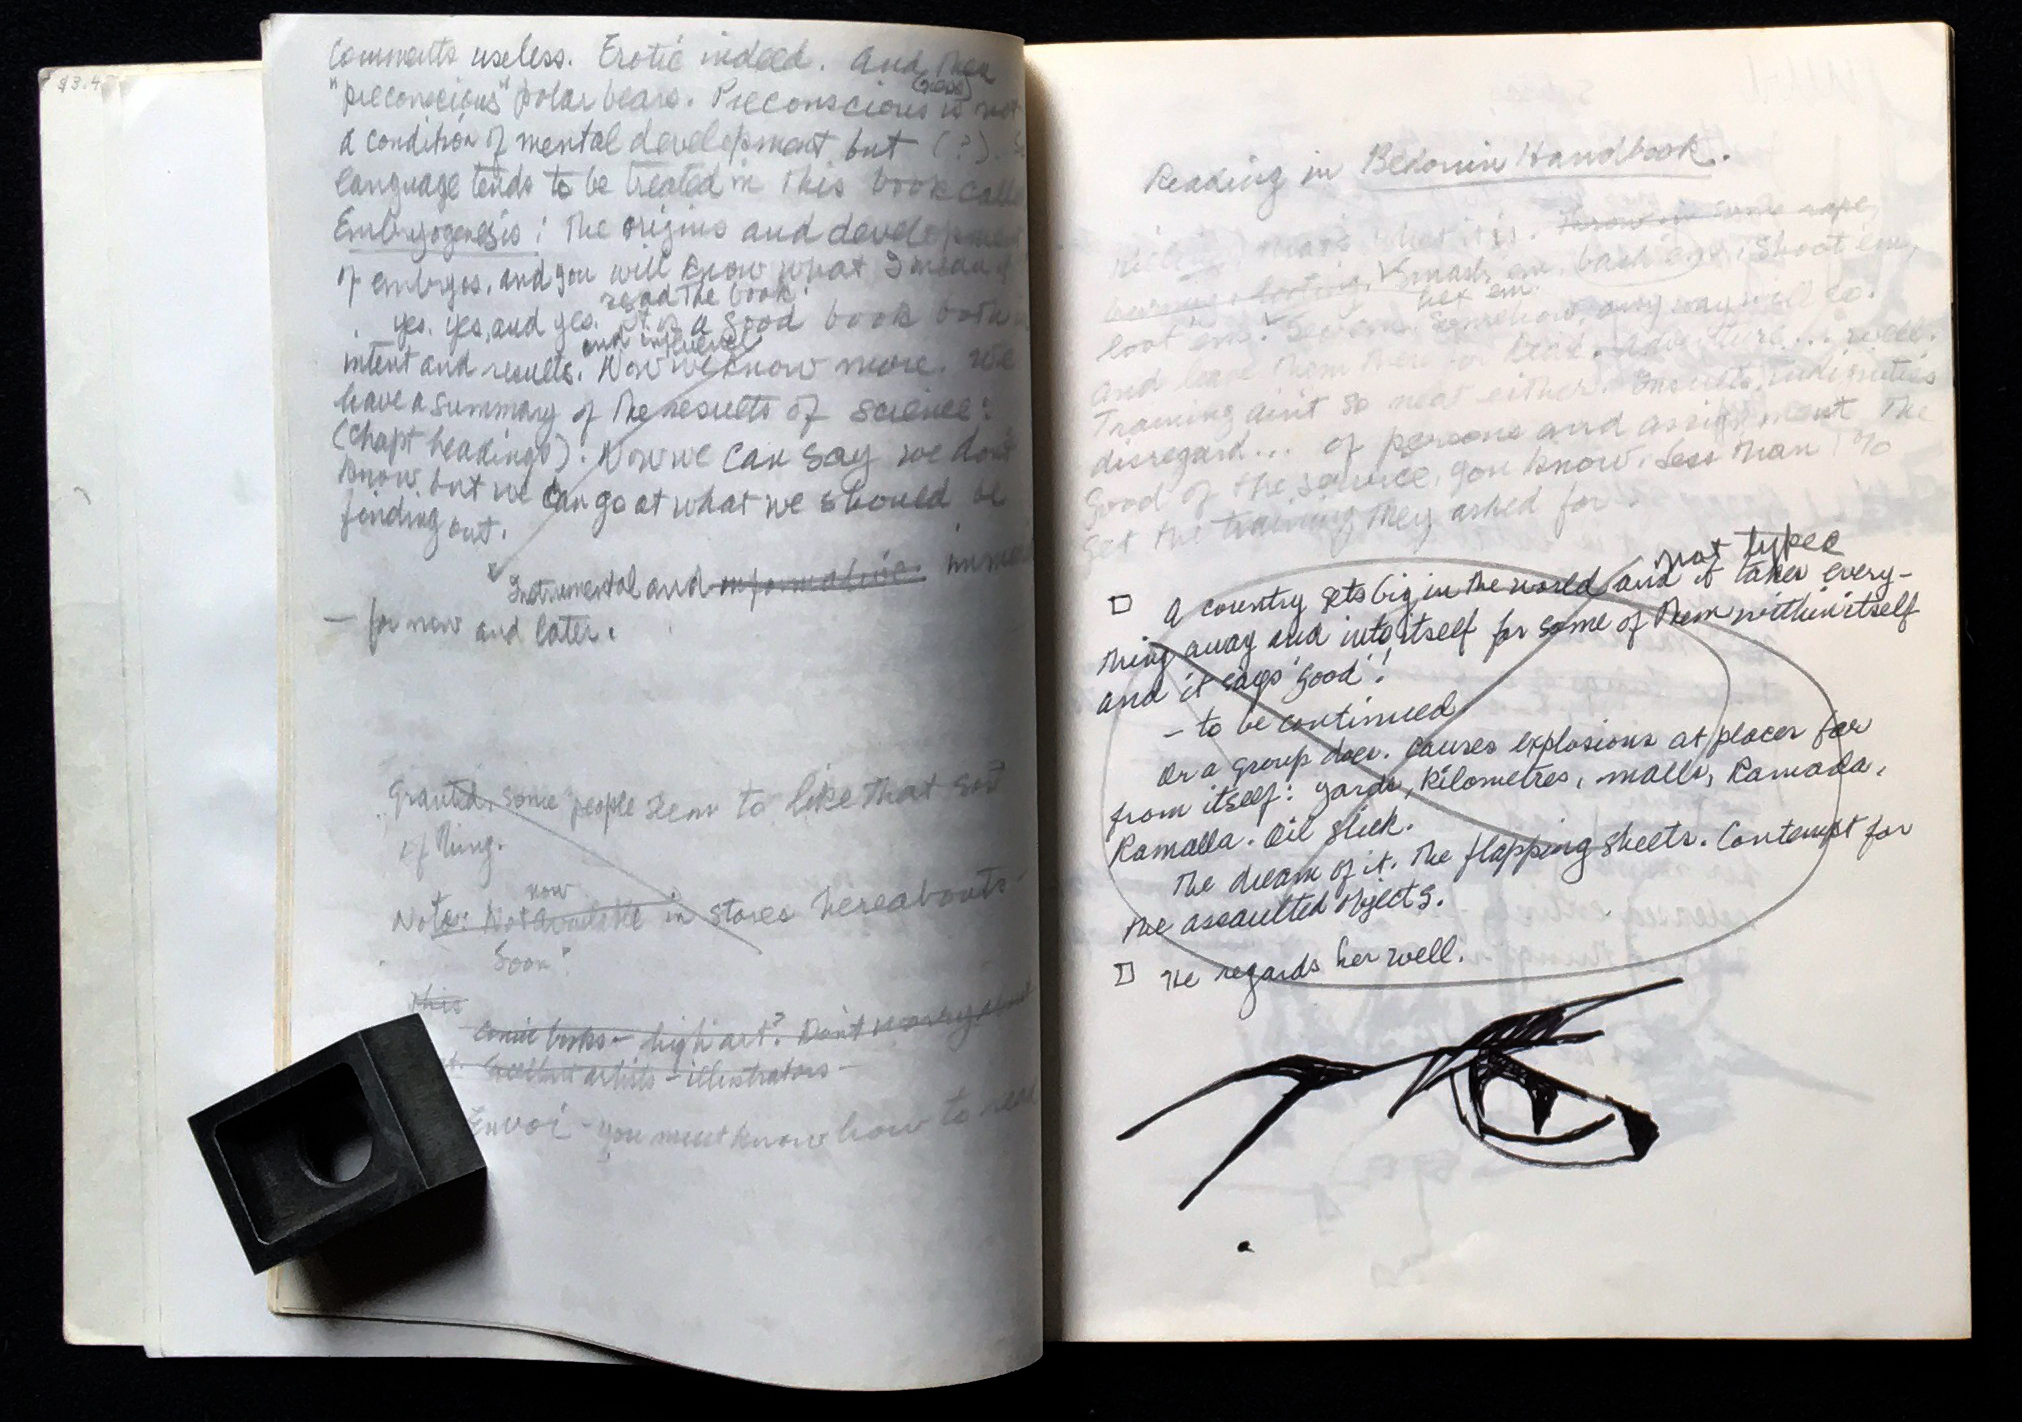 $3.4
Comments useless. Erotic indeed. And then
(news)
"preconscious" polar bears. Preconscious is not
a condition of mental development but (?). So
language tends to be treated in this book called
Embryogenesis: The origins and development
of embryos, and you will know what I mean if
read the book.
yes. yes, and yes. It is a good book both in
and influence
intent and results. Now we know more. We
have a summary of the results of science:
(chapt headings). Now we can say we don't
know, but we can go at what we should be
finding out.
Instrumental and informative.
— for now and later.
Granted, some people seem to like that sort
of thing.
now
Note: Not available in stores hereabouts
Soon"
this
comic books – high art? Don't worry about
artists – illustrators –
Envoi – you must know how to read
Reading in Bedouin Handbook.
that's what it is. Throw in some rape,
burning, looting, smash em, bash em, shoot em,
hex em
loot em. somehow, any way will do.
And leave them there for dead. adventure... well.
Training ain't so neat either. Insults, indignities
disregard... of persons and assignment. The
Good of the service, you know. Less than 1%
Get the training they asked for.
not typed
□ A country gets big in the world and it takes every-
thing away and into itself for some of them within itself
and it says 'Good'!
– to be continued.
Or a group does. Causes explosions at places far
from itself: yards, kilometres, malls, Ramada,
Ramalla. Oil slick.
The dream of it. The flapping sheets. Contempt for
the assaulted objects.
□ He regards her well.